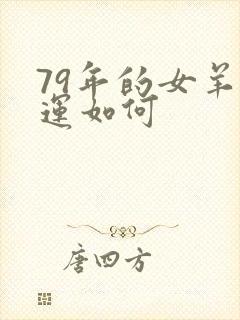 79年的女羊
運如何
唐四方